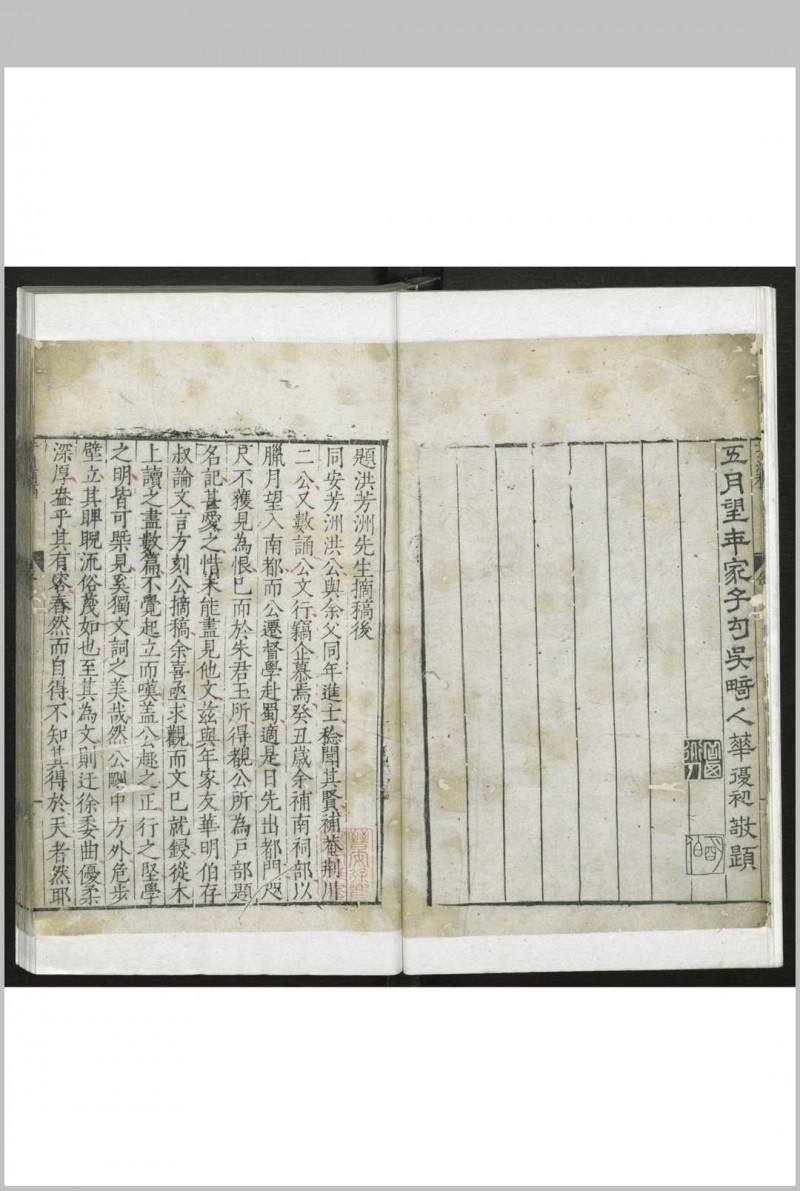 五月望年家子勾吳畸人華復初敬題
明伯
題洪芳洲先生摘稿後
同安芳洲洪公與余父同年進士稔聞其賢補菴荆川
二公又數誦公文行竊企慕焉癸丑歲余補南祠部以
臘月望入南都而公遷督學赴蜀適是日先出都門咫
尺不獲見為恨已而於朱君玉所得覩公所為戸部題
名記甚愛之惜未能盡見他文兹與年家友華明伯存
叔論文言方刻公摘稿余喜亟求觀而文已就鋟從木
上讀之盡數篇不覺起立而嘆盖公趣之正行之堅學
之明皆可槩見奚獨文詞之美哉然公剛中方外危步
壁立其睥睨流俗蔑如也至其為文則迂徐委曲優柔
深厚盎乎其有容春然而自得不知其得於天者然耶